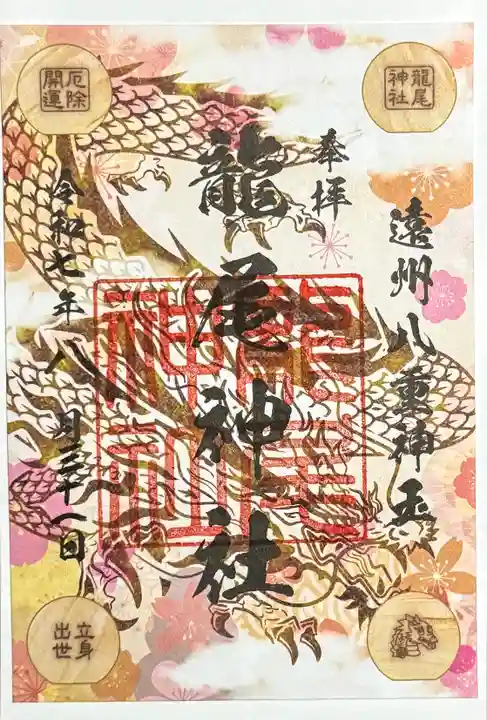 龍尾神社
奉拝
遠州八重神玉
龍尾神社
龍尾神社
令和七年八月三十一日
厄除開運
立身出世